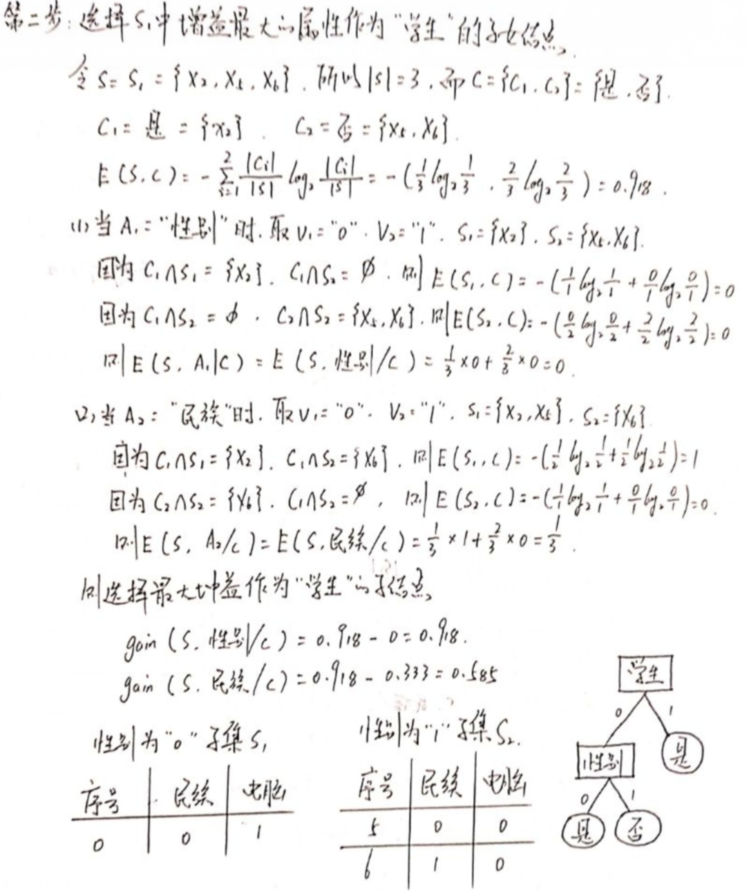 第二步: 选择S₁中增益最大的属性作为"学生"的子女结点.
令S=S₁={X₂,X₅,X₆}. 所以|S|=3, 而C={C₁,C₂}={是,否}.
C₁=是={X₂}. C₂=否={X₅,X₆}.
E(S,C)=-∑²ᵢ₌₁ |Cᵢ|/|S| log₂ |Cᵢ|/|S| = -(1/3 log₂ 1/3 , 2/3 log₂ 2/3)=0.918.
(1) 当A₁="性别"时. 取V₁="0". V₂="1". S₁={X₂}. S₂={X₅,X₆}.
因为C₁∩S₁={X₂}. C₁∩S₂=∅. 则E(S₁,C)=-(1/1 log₂ 1/1 + 0/1 log₂ 0/1)=0
因为C₁∩S₂=∅. C₂∩S₂={X₅,X₆}. 则E(S₂,C)=-(0/2 log₂ 0/2 + 2/2 log₂ 2/2)=0
则E(S, A₁|C)=E(S,性别/C)=1/3×0+2/3×0=0.
(2) 当A₂: "民族"时. 取V₁="0". V₂="1". S₁={X₂,X₅}. S₂={X₆}
因为C₁∩S₁={X₂}. C₁∩S₂={X₆}. 则E(S₁,C)=-(1/2 log₂ 1/2 + 1/2 log₂ 1/2)=1
因为C₂∩S₂={X₆}. C₁∩S₂=∅, 则E(S₂,C)=-(1/1 log₂ 1/1 + 0/1 log₂ 0/1)=0.
则E(S, A₂/C)=E(S,民族/C)=1/3×1+2/3×0=1/3.
则选择最大增益作为"学生"的子结点
gain(S,性别/C)=0.918-0=0.918.
gain(S,民族/C)=0.918-0.333=0.585
性别为"0"子集S₁
序号 民族 电脑
0 0 1
性别为"1"子集S₂.
序号 民族 电脑
5 0 0
6 1 0
学生
0 1
性别 是
0 1
是 否